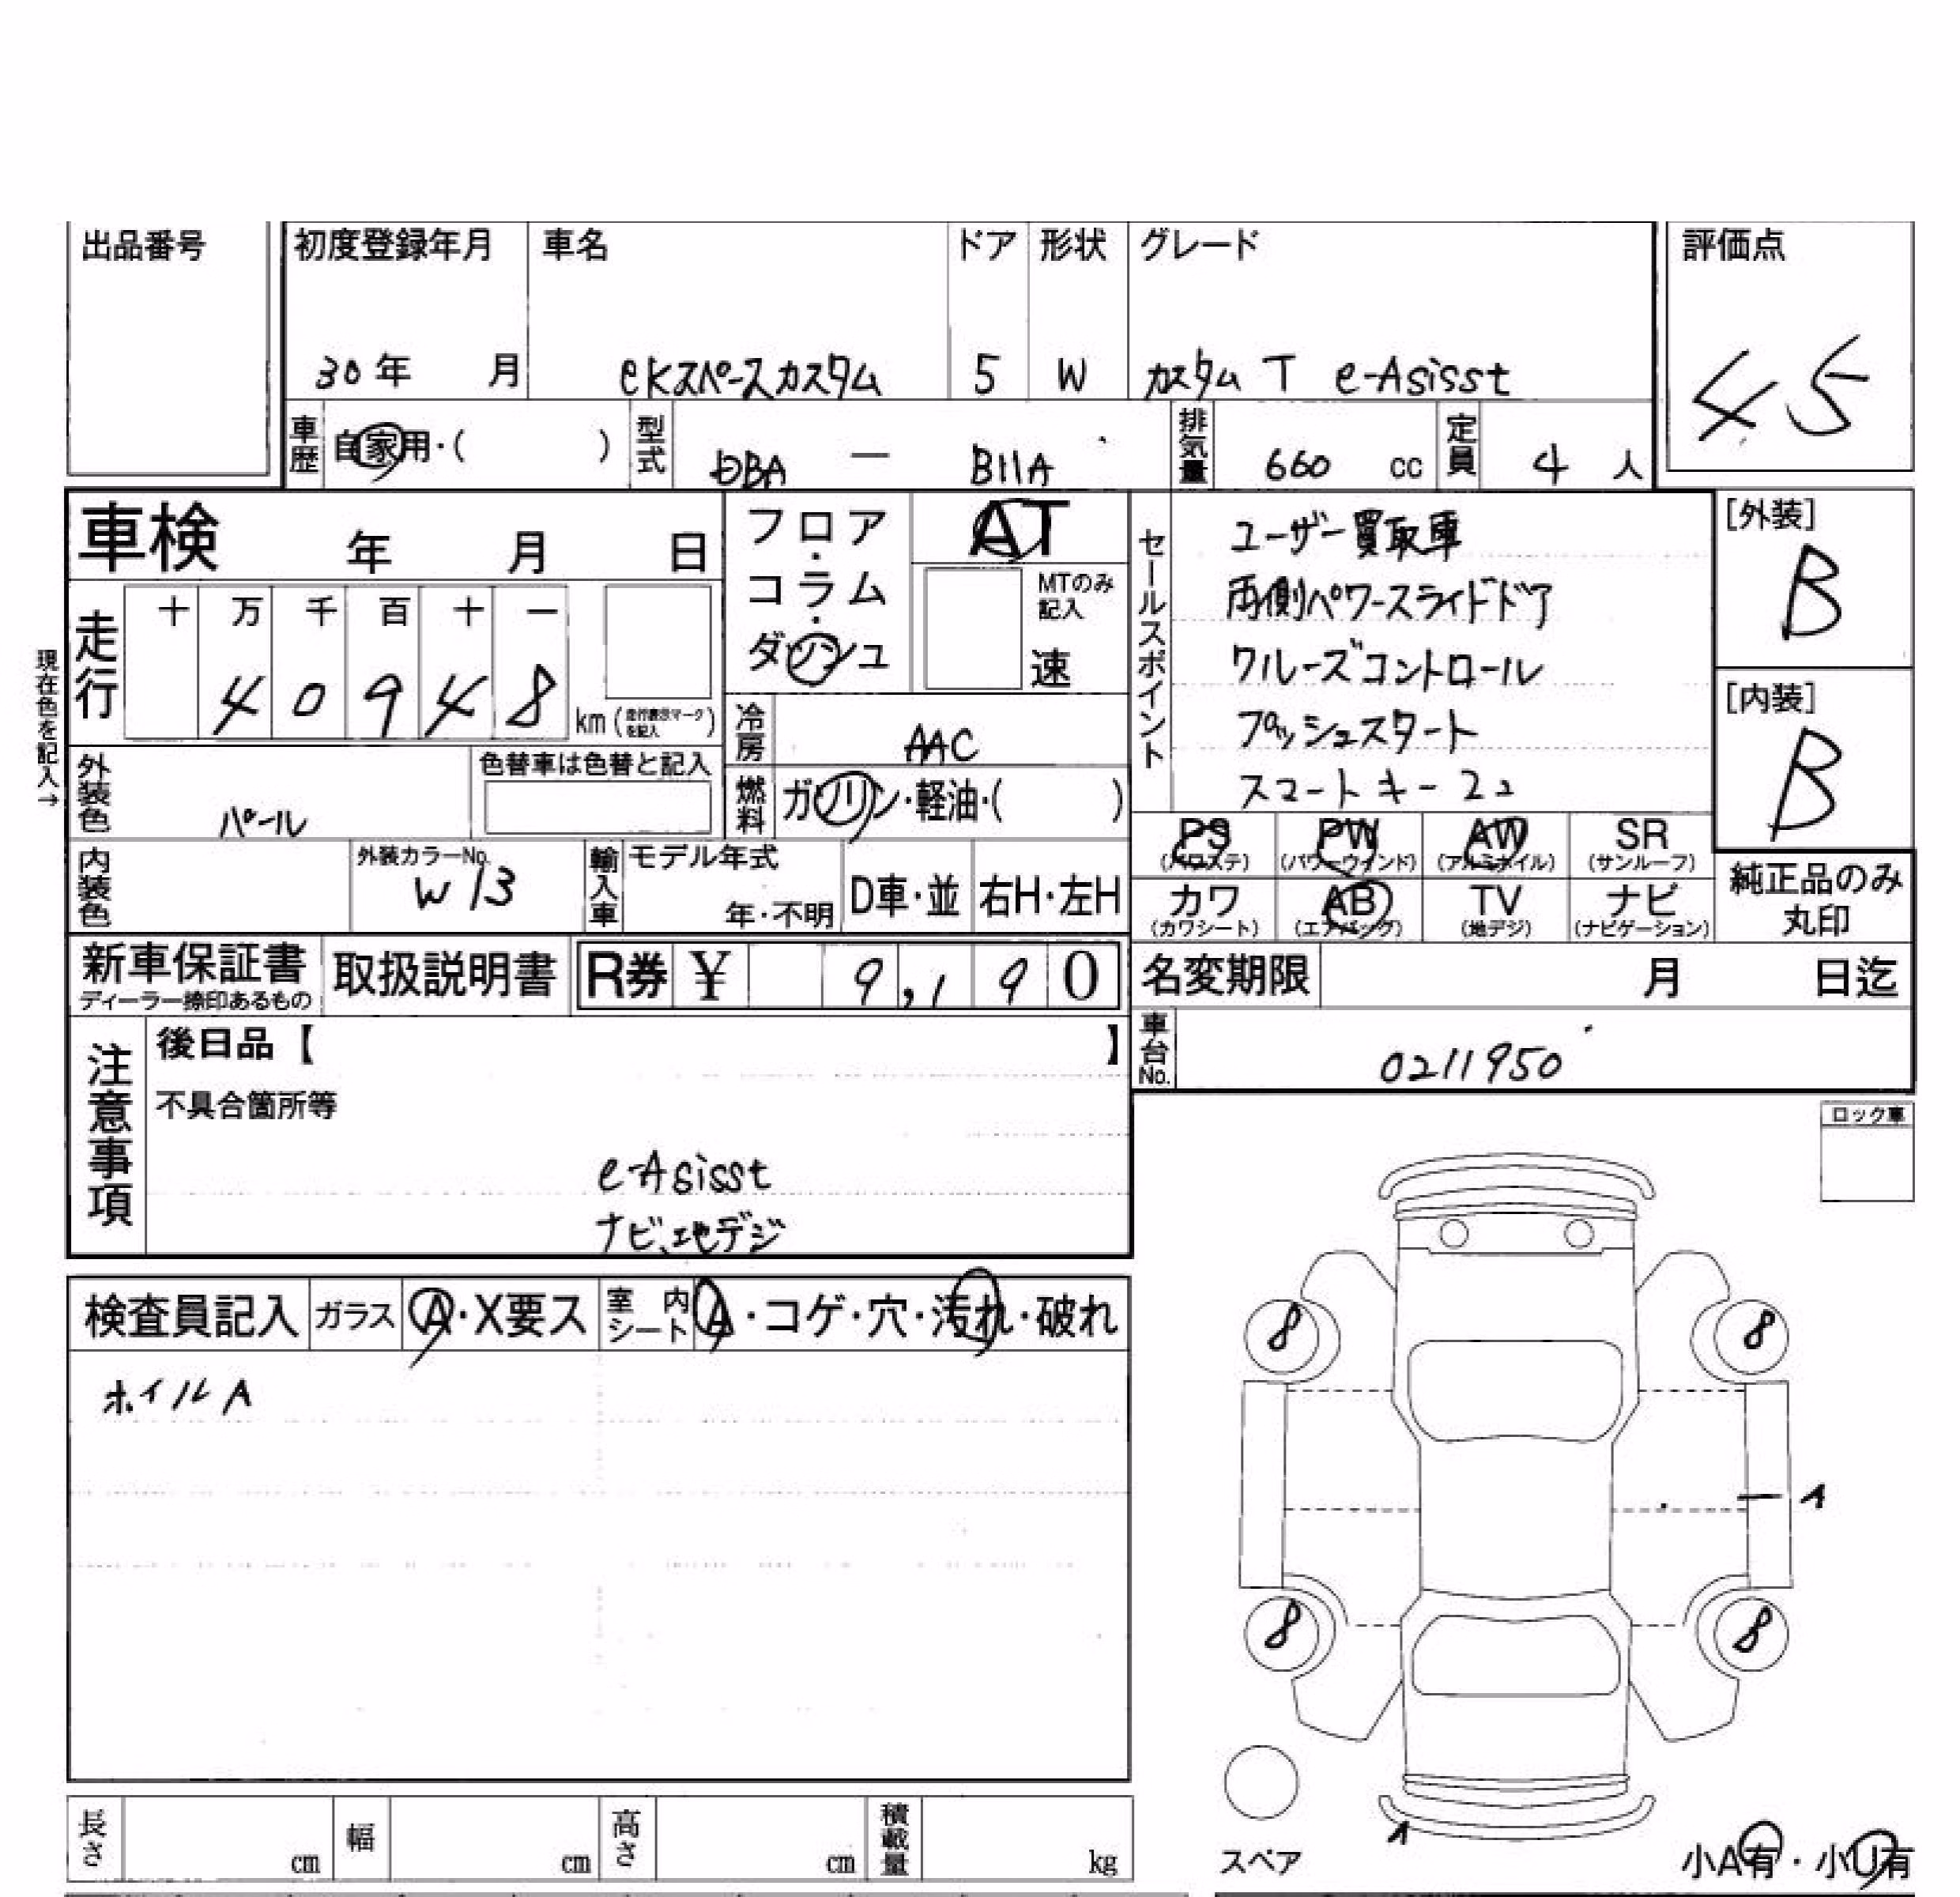 出品番号
初度登録年月 車名 ドア 形状 グレード 評価点
30年 月 ekスペースカスタム 5 W カスタム T e-Asisst 45
車歴 自家用・( ) 型式 DBA — B11A 排気量 660 cc 定員 4 人
車検 年 月 日
フロア・コラム・ダッシュ
AT
MTのみ記入
速
現在色を記入→
走行 十 万 千 百 十 一
4 0 9 4 8 km (走行表示マークを記入)
冷房 AAC
燃料 ガソリン・軽油・( )
外装色 パール
色替車は色替と記入
内装色
外装カラーNo. W13
輸入車 モデル年式 年・不明 D車・並 右H・左H
セールスポイント
ユーザー買取車
両側パワースライドドア
クルーズコントロール
プッシュスタート
スマートキー 2コ
[外装] B
[内装] B
PS (パワステ) PW (パワーウインド) AW (アルミホイル) SR (サンルーフ)
カワ (カワシート) AB (エアバッグ) TV (地デジ) ナビ (ナビゲーション)
純正品のみ丸印
新車保証書
ディーラー捺印あるもの
取扱説明書
R券 ¥ 9,190
名変期限 月 日迄
車台No. 0211950
注意事項
後日品【 】
不具合箇所等
e-Asisst
ナビ、地デジ
ロック車
検査員記入 ガラス A・X要ス 室内シート A・コゲ・穴・汚れ・破れ
ホイルA
8 8
A
8 8
A
スペア
小A有・小U有
長さ cm 幅 cm 高さ cm 積載量 kg